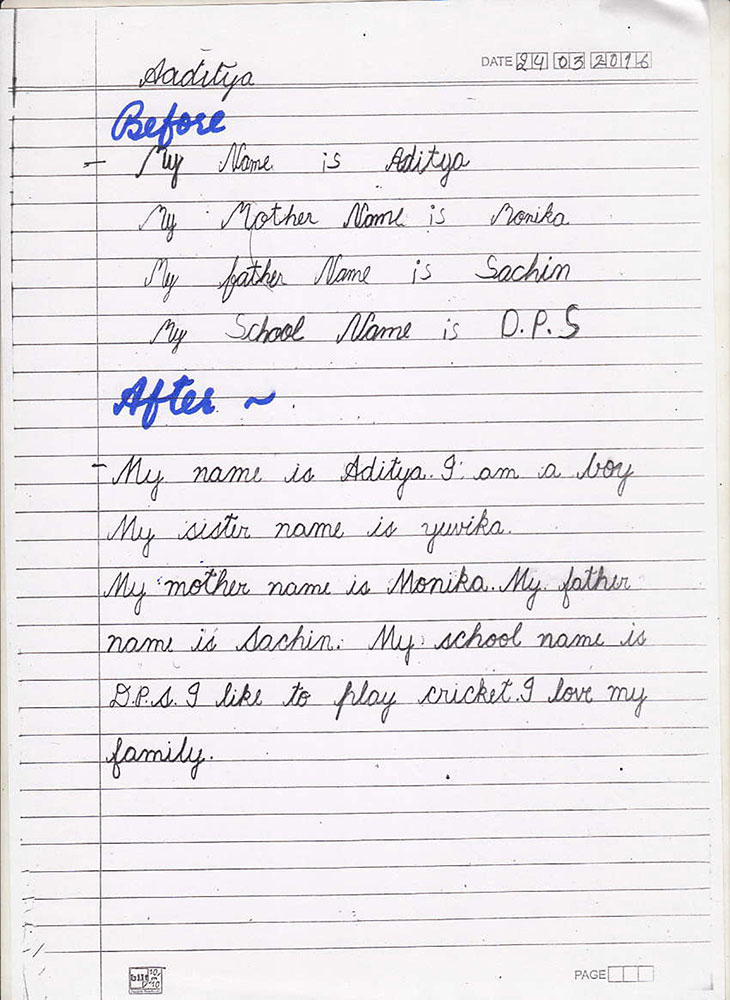 Aaditya
DATE 24 03 2016
Before
- My Name is Aditya
My Mother Name is Monika
My father Name is Sachin
My School Name is D.P.S
After ~
- My name is Aditya. I am a boy
My sister name is yuvika.
My mother name is Monika. My father
name is Sachin. My school name is
D.P.S. I like to play cricket. I love my
family.
bilt
PAGE